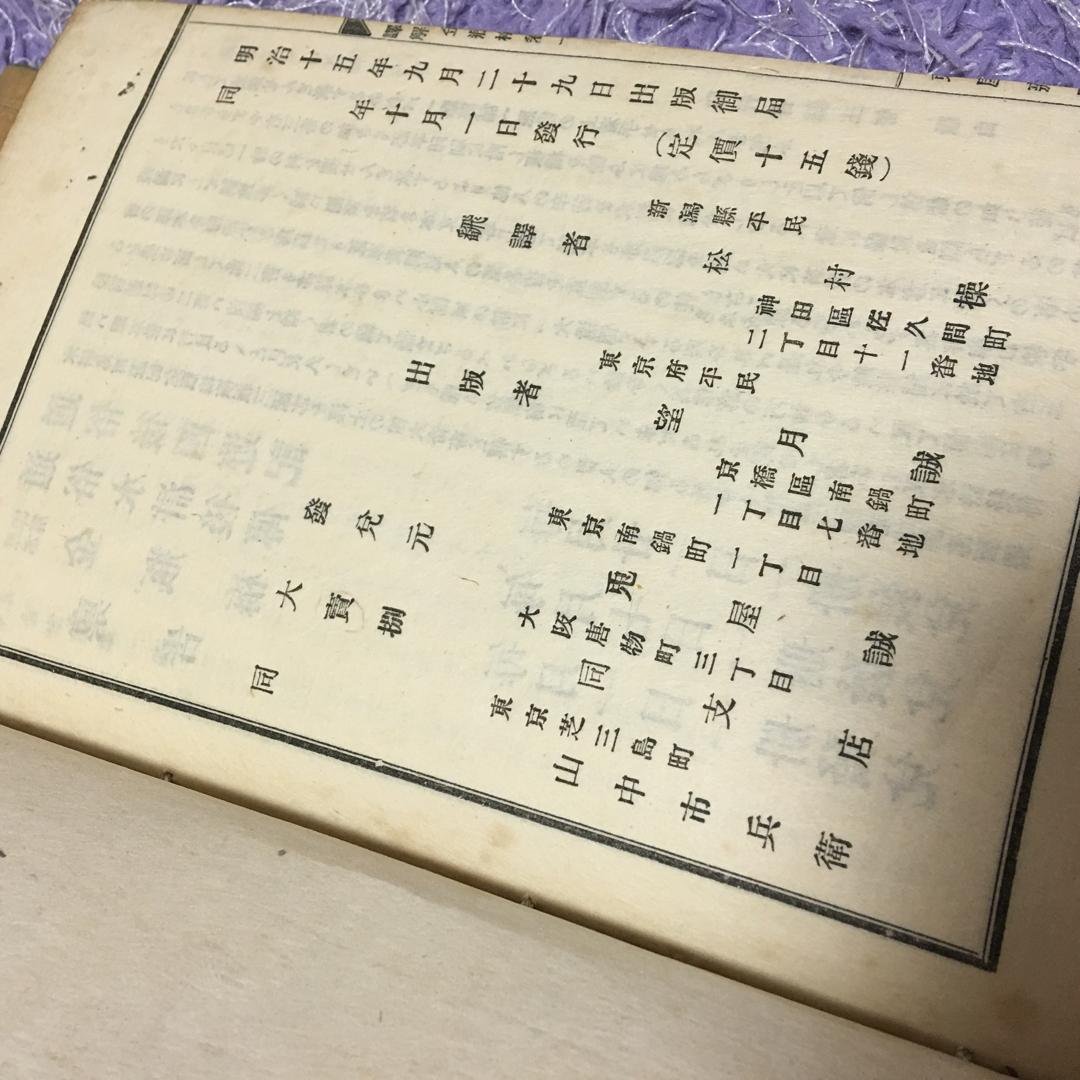 明治十五年九月二十九日出版御届
同年十月一日發行(定價十五錢)
新潟縣平民
飜譯者 松村操
神田區佐久間町
二丁目十一番地
東京府平民
出版者 望月誠
京橋區南鍋町
一丁目七番地
東京南鍋町一丁目
發兌元 兎屋誠
大阪唐物町三丁目
大賣捌 同支店
東京芝三島町
同 山中市兵衛